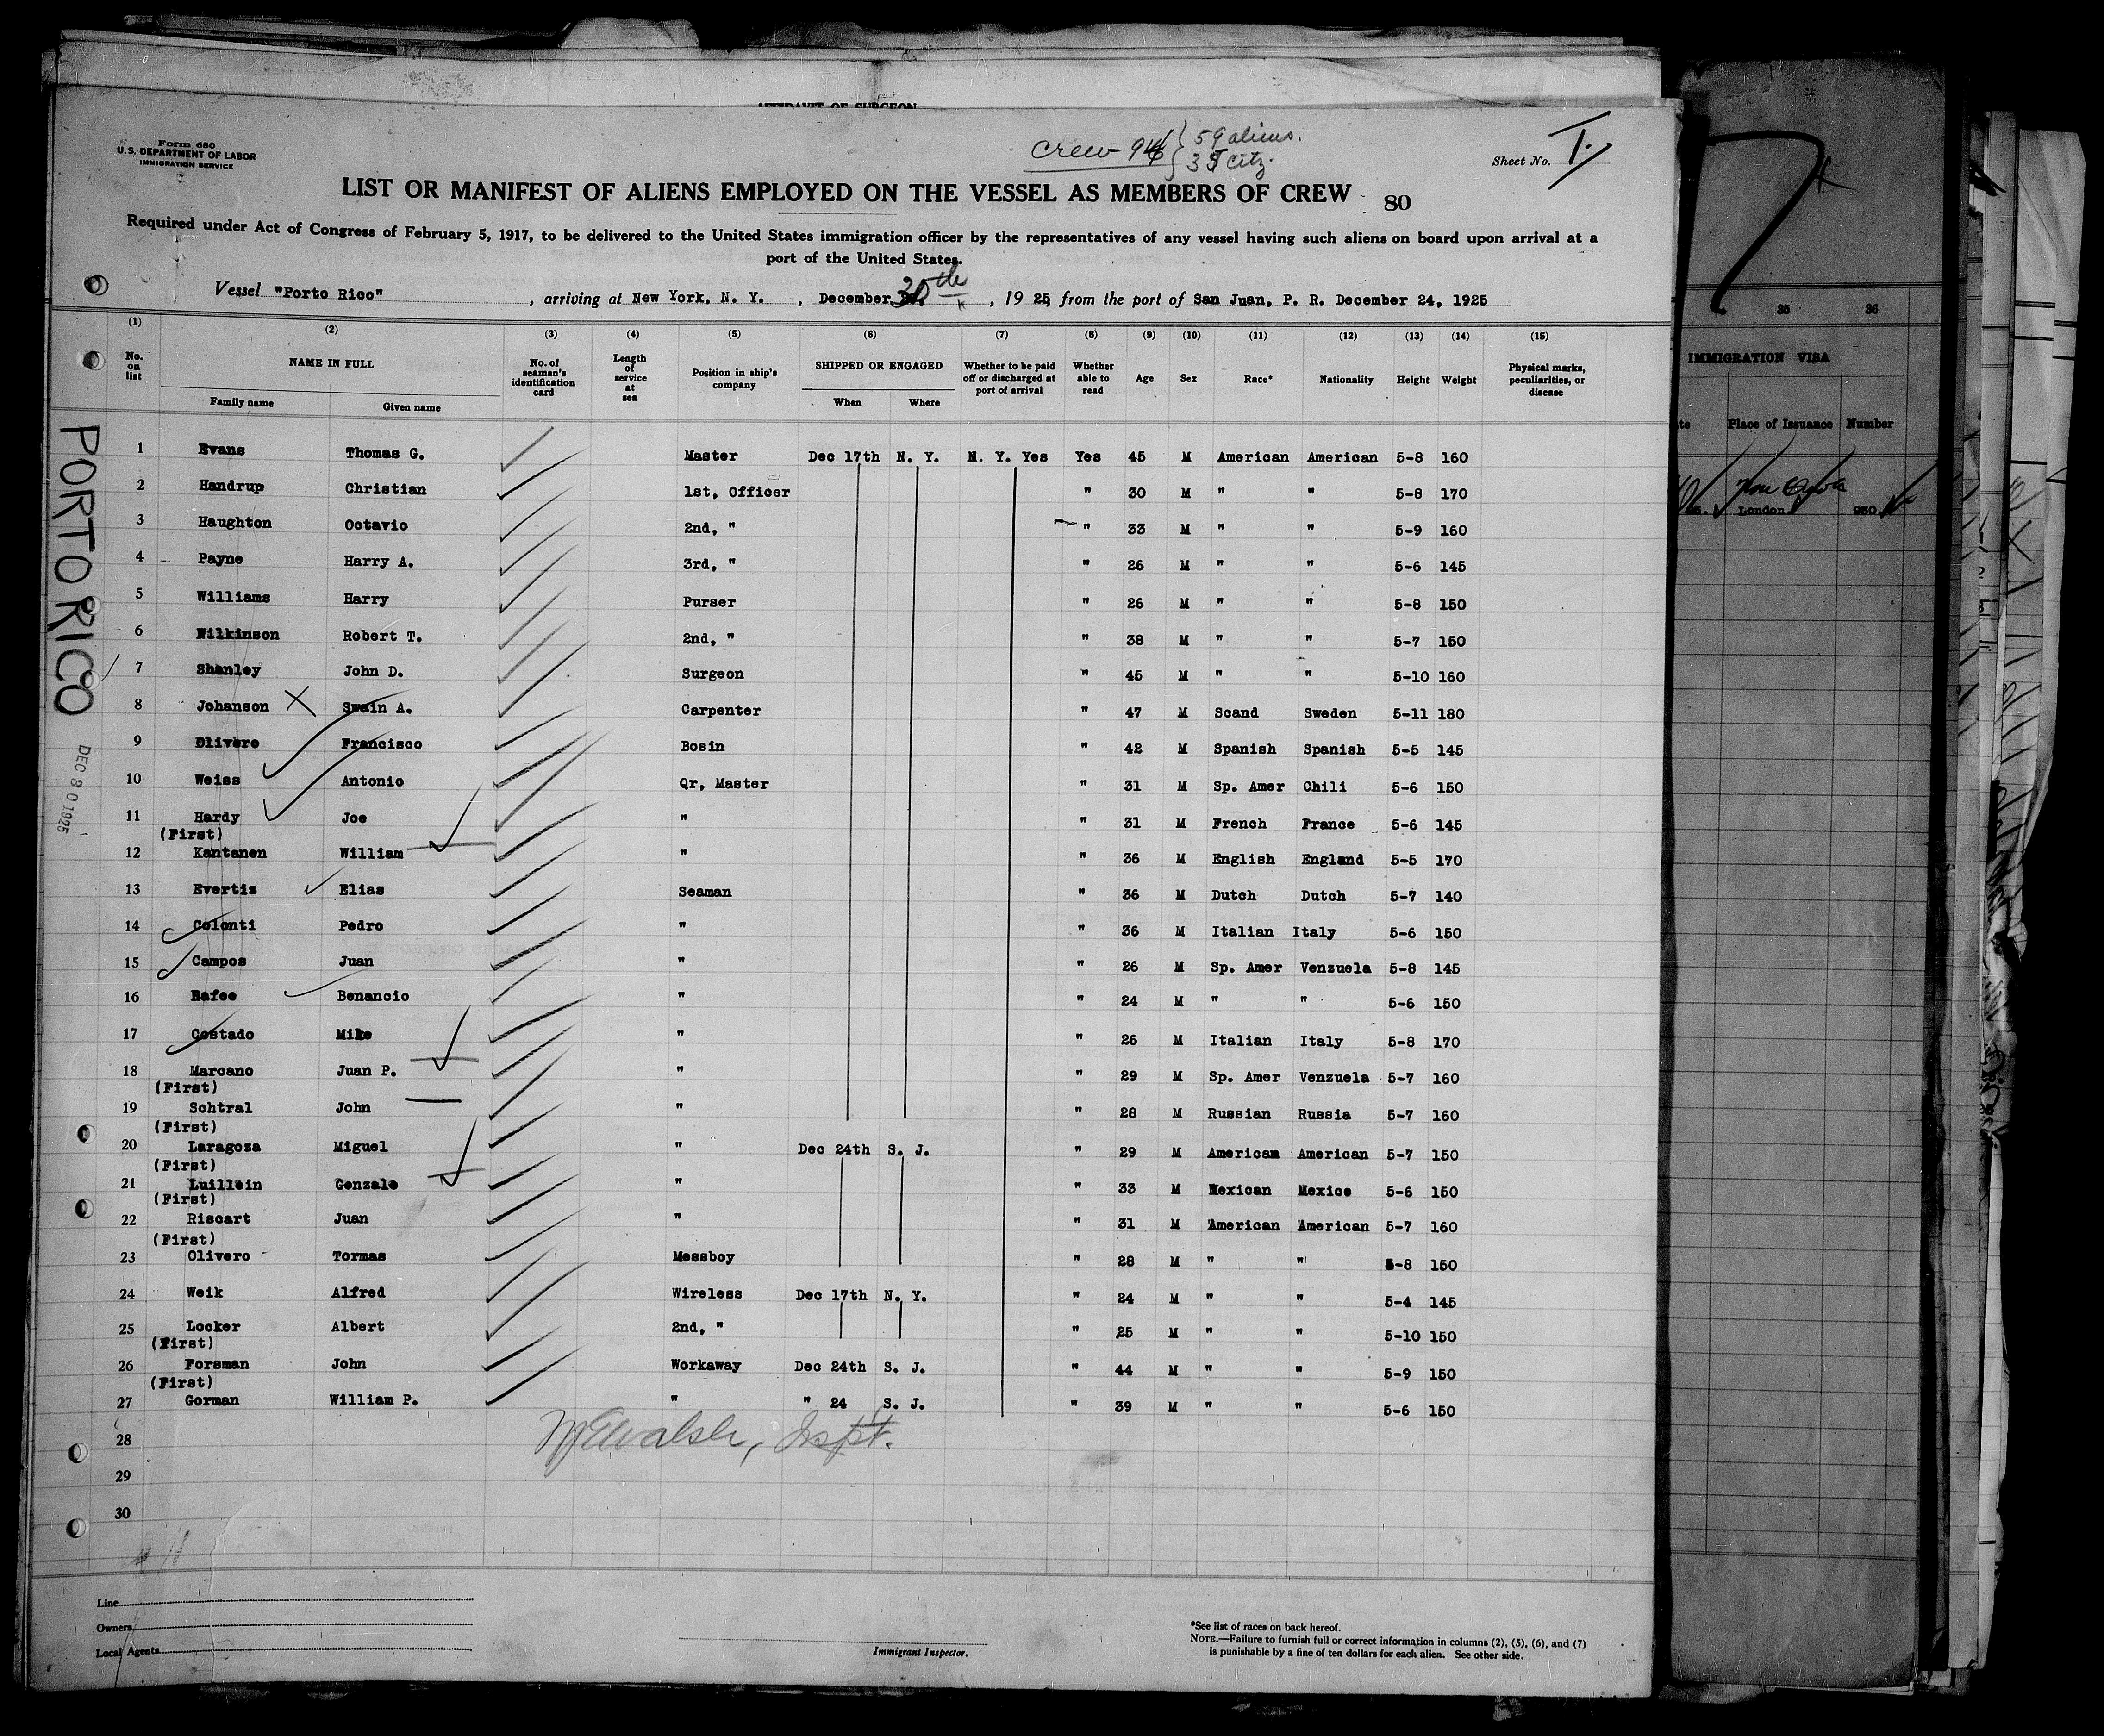 AFFIDAVIT OF SURGEON
Form 680
U.S. DEPARTMENT OF LABOR
IMMIGRATION SERVICE
Crew 94 { 59 aliens.
35 citz.
Sheet No. 1.
LIST OR MANIFEST OF ALIENS EMPLOYED ON THE VESSEL AS MEMBERS OF CREW 80
Required under Act of Congress of February 5, 1917, to be delivered to the United States immigration officer by the representatives of any vessel having such aliens on board upon arrival at a
port of the United States.
Vessel "Porto Rico" , arriving at New York, N. Y. , December 30th , 1925, from the port of San Juan, P. R. December 24, 1925
(1) (2) (3) (4) (5) (6) (7) (8) (9) (10) (11) (12) (13) (14) (15)
No. on list NAME IN FULL Family name Given name No. of seaman's identification card Length of service at sea Position in ship's company SHIPPED OR ENGAGED When Where Whether to be paid off or discharged at port of arrival Whether able to read Age Sex Race* Nationality Height Weight Physical marks, peculiarities, or disease
1 Evans Thomas G. Master Dec 17th N. Y. N. Y. Yes Yes 45 M American American 5-8 160
2 Handrup Christian 1st, Officer " 30 M " " 5-8 170
3 Haughton Octavio 2nd, " " 33 M " " 5-9 160
4 Payne Harry A. 3rd, " " 26 M " " 5-6 145
5 Williams Harry Purser " 26 M " " 5-8 150
6 Wilkinson Robert T. 2nd, " " 38 M " " 5-7 150
7 Shanley John D. Surgeon " 45 M " " 5-10 160
8 Johanson Swain A. Carpenter " 47 M Scand Sweden 5-11 180
9 Olivero Francisco Bosin " 42 M Spanish Spanish 5-5 145
10 Weiss Antonio Qr, Master " 31 M Sp. Amer Chili 5-6 150
11 Hardy Joe " " 31 M French France 5-6 145
(First)
12 Kantanen William " " 36 M English England 5-5 170
13 Evertis Elias Seaman " 36 M Dutch Dutch 5-7 140
14 Colonti Pedro " " 36 M Italian Italy 5-6 150
15 Campos Juan " " 26 M Sp. Amer Venzuela 5-8 145
16 Rafee Benancio " " 24 M " " 5-6 150
17 Costado Mike " " 26 M Italian Italy 5-8 170
18 Marcano Juan P. " " 29 M Sp. Amer Venzuela 5-7 160
(First)
19 Schtral John " " 28 M Russian Russia 5-7 160
(First)
20 Laragoza Miguel " Dec 24th S. J. " 29 M American American 5-7 150
(First)
21 Luillein Gonzalo " " 33 M Mexican Mexico 5-6 150
(First)
22 Riscart Juan " " 31 M American American 5-7 160
(First)
23 Olivero Tormas Messboy " 28 M " " 5-8 150
24 Weik Alfred Wireless Dec 17th N. Y. " 24 M " " 5-4 145
25 Locker Albert 2nd, " " 25 M " " 5-10 150
(First)
26 Forsman John Workaway Dec 24th S. J. " 44 M " " 5-9 150
(First)
27 Gorman William P. " " 24 S. J. " 39 M " " 5-6 150
28
29
30
Walsh, Inspt.
PORTO RICO
DEC 30 1925
Line
Owners
Local Agents
Immigrant Inspector.
*See list of races on back hereof.
NOTE.—Failure to furnish full or correct information in columns (2), (5), (6), and (7)
is punishable by a fine of ten dollars for each alien. See other side.
7
35 36
IMMIGRATION VISA
Place of Issuance Number
London 930.